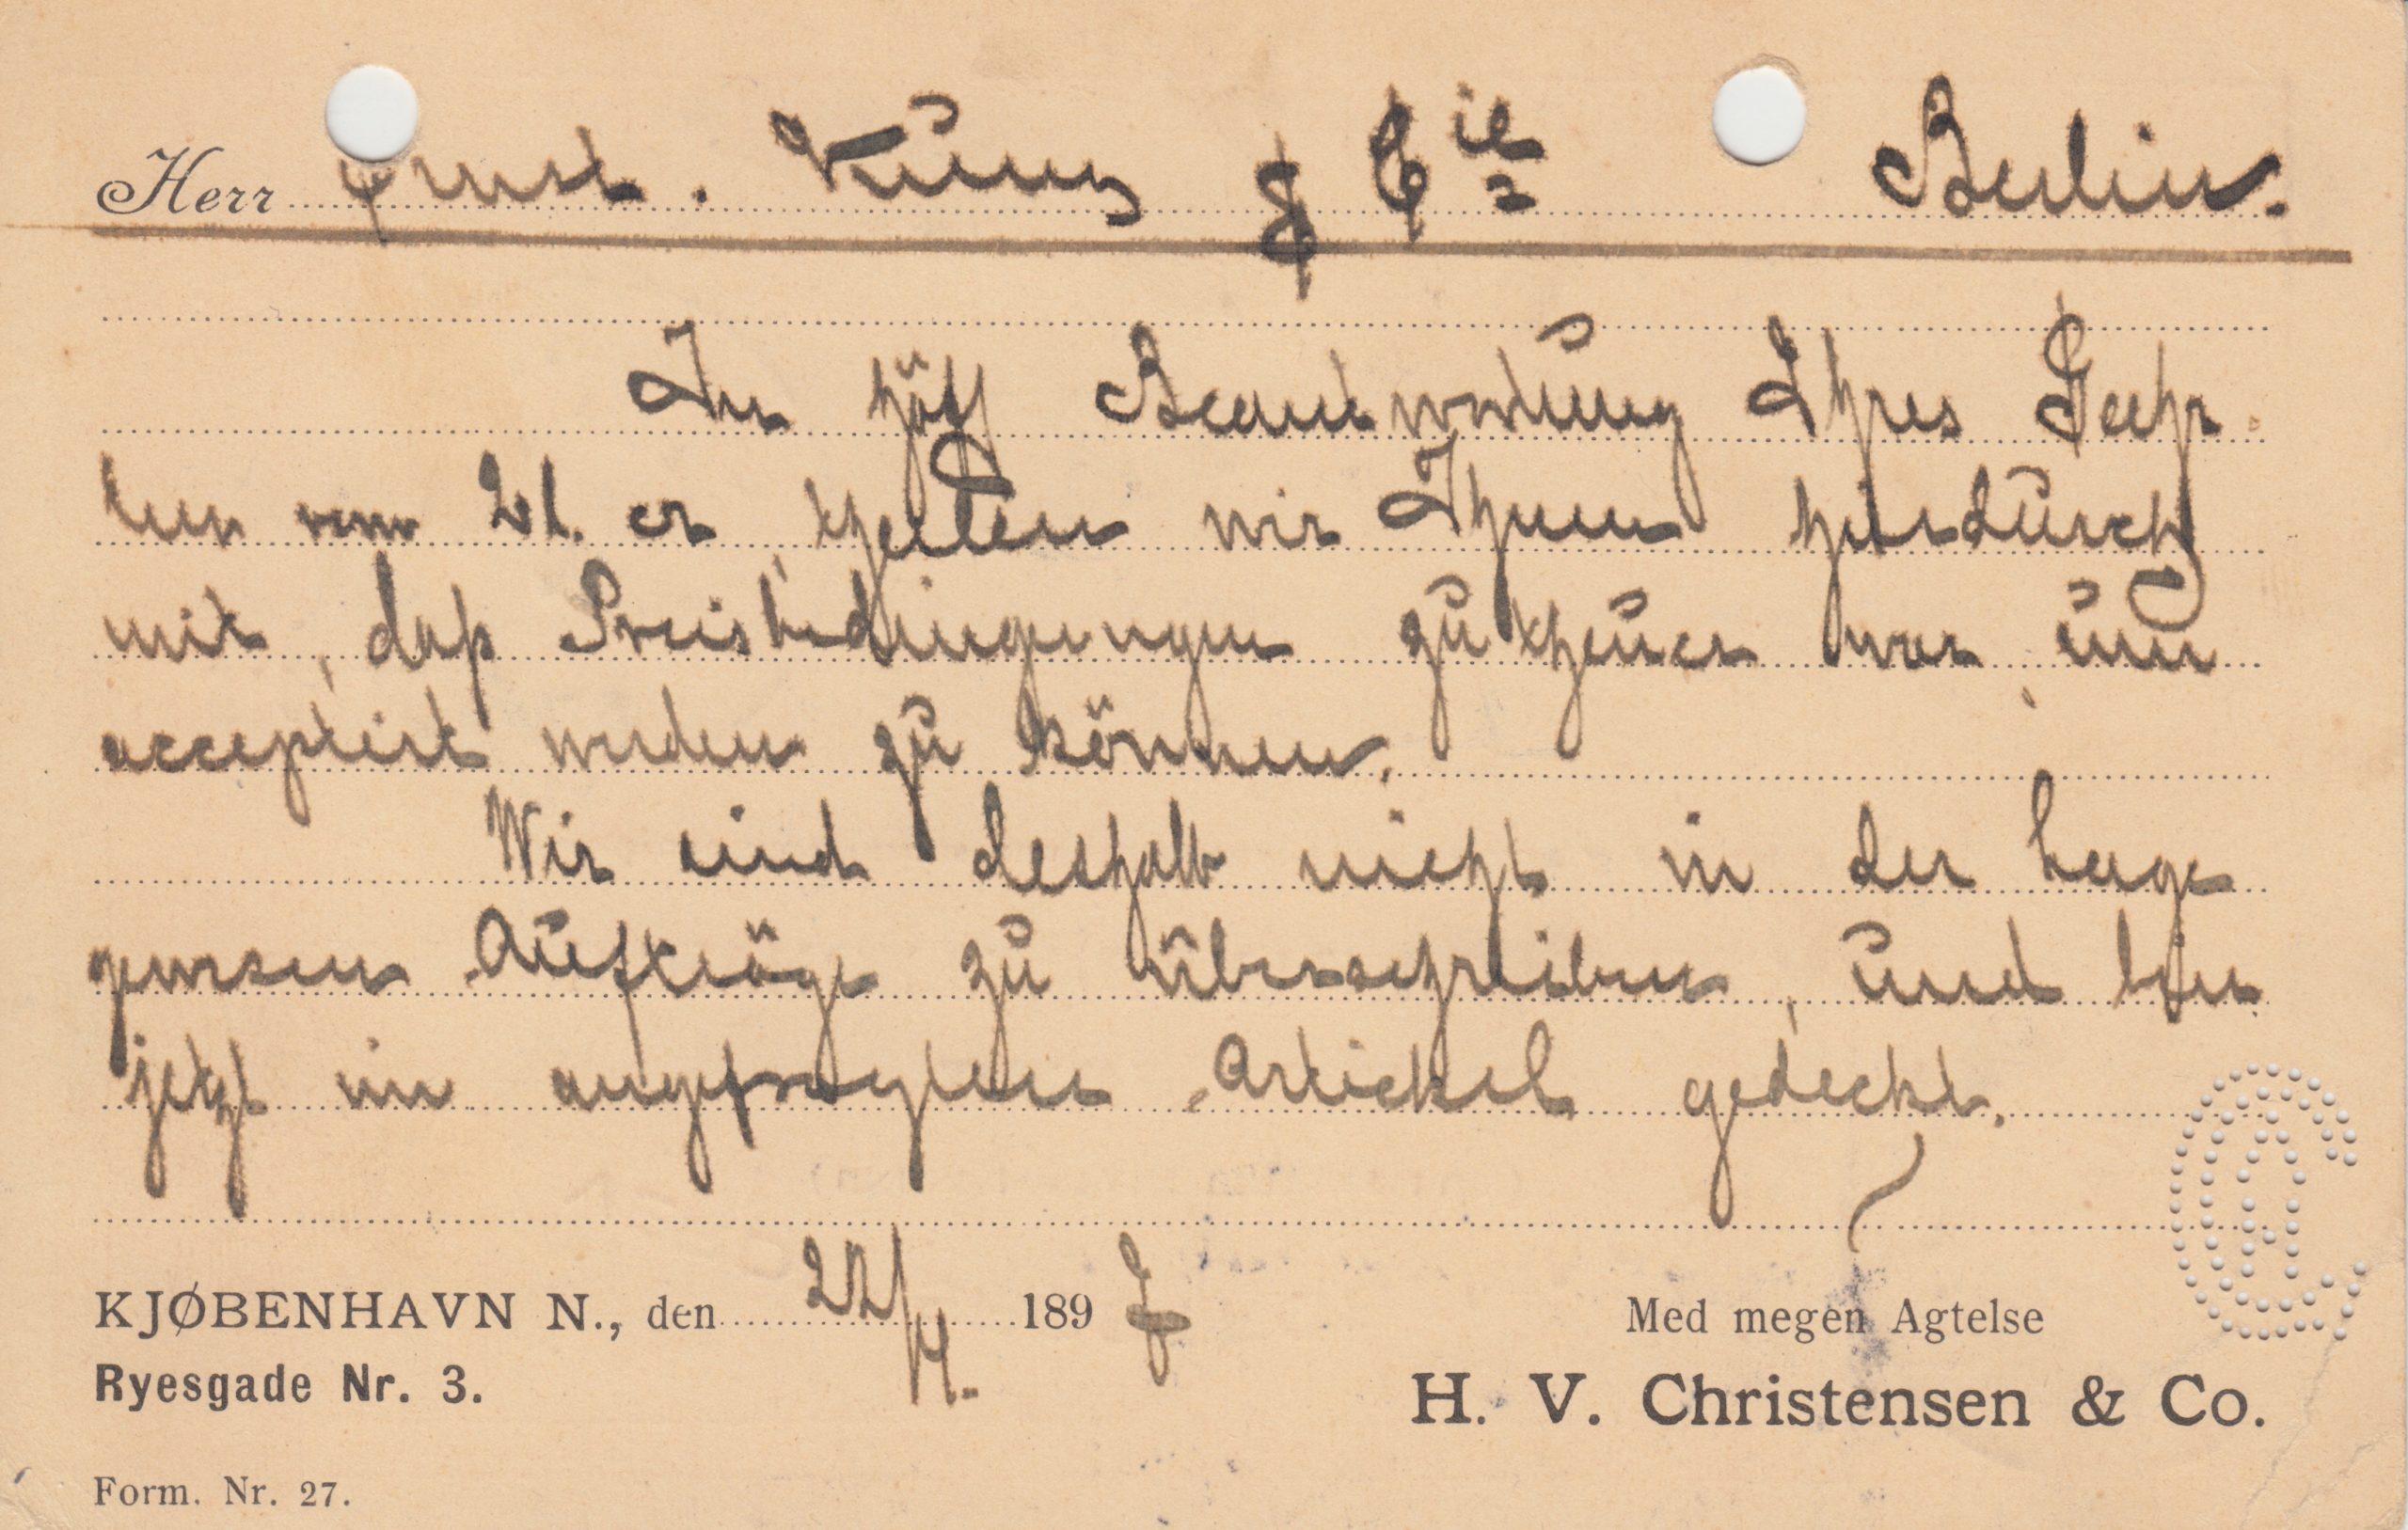 Herr Ernst. Kunz & Cie Berlin.
In höfl Beantwortung Ihres Geehr
ten vom 21. cr, theilen wir Ihnen hierdurch
mit, daß Preisbedingungen zu theuer war, um
acceptirt werden zu können.
Wir sind deshalb nicht in der Lage
Aufträge zu überschreiben, und bin
jetzt im angefragten Artickel gedeckt.
KJØBENHAVN N., den 22/4. 1897
Med megen Agtelse
Ryesgade Nr. 3.
H. V. Christensen & Co.
Form. Nr. 27.